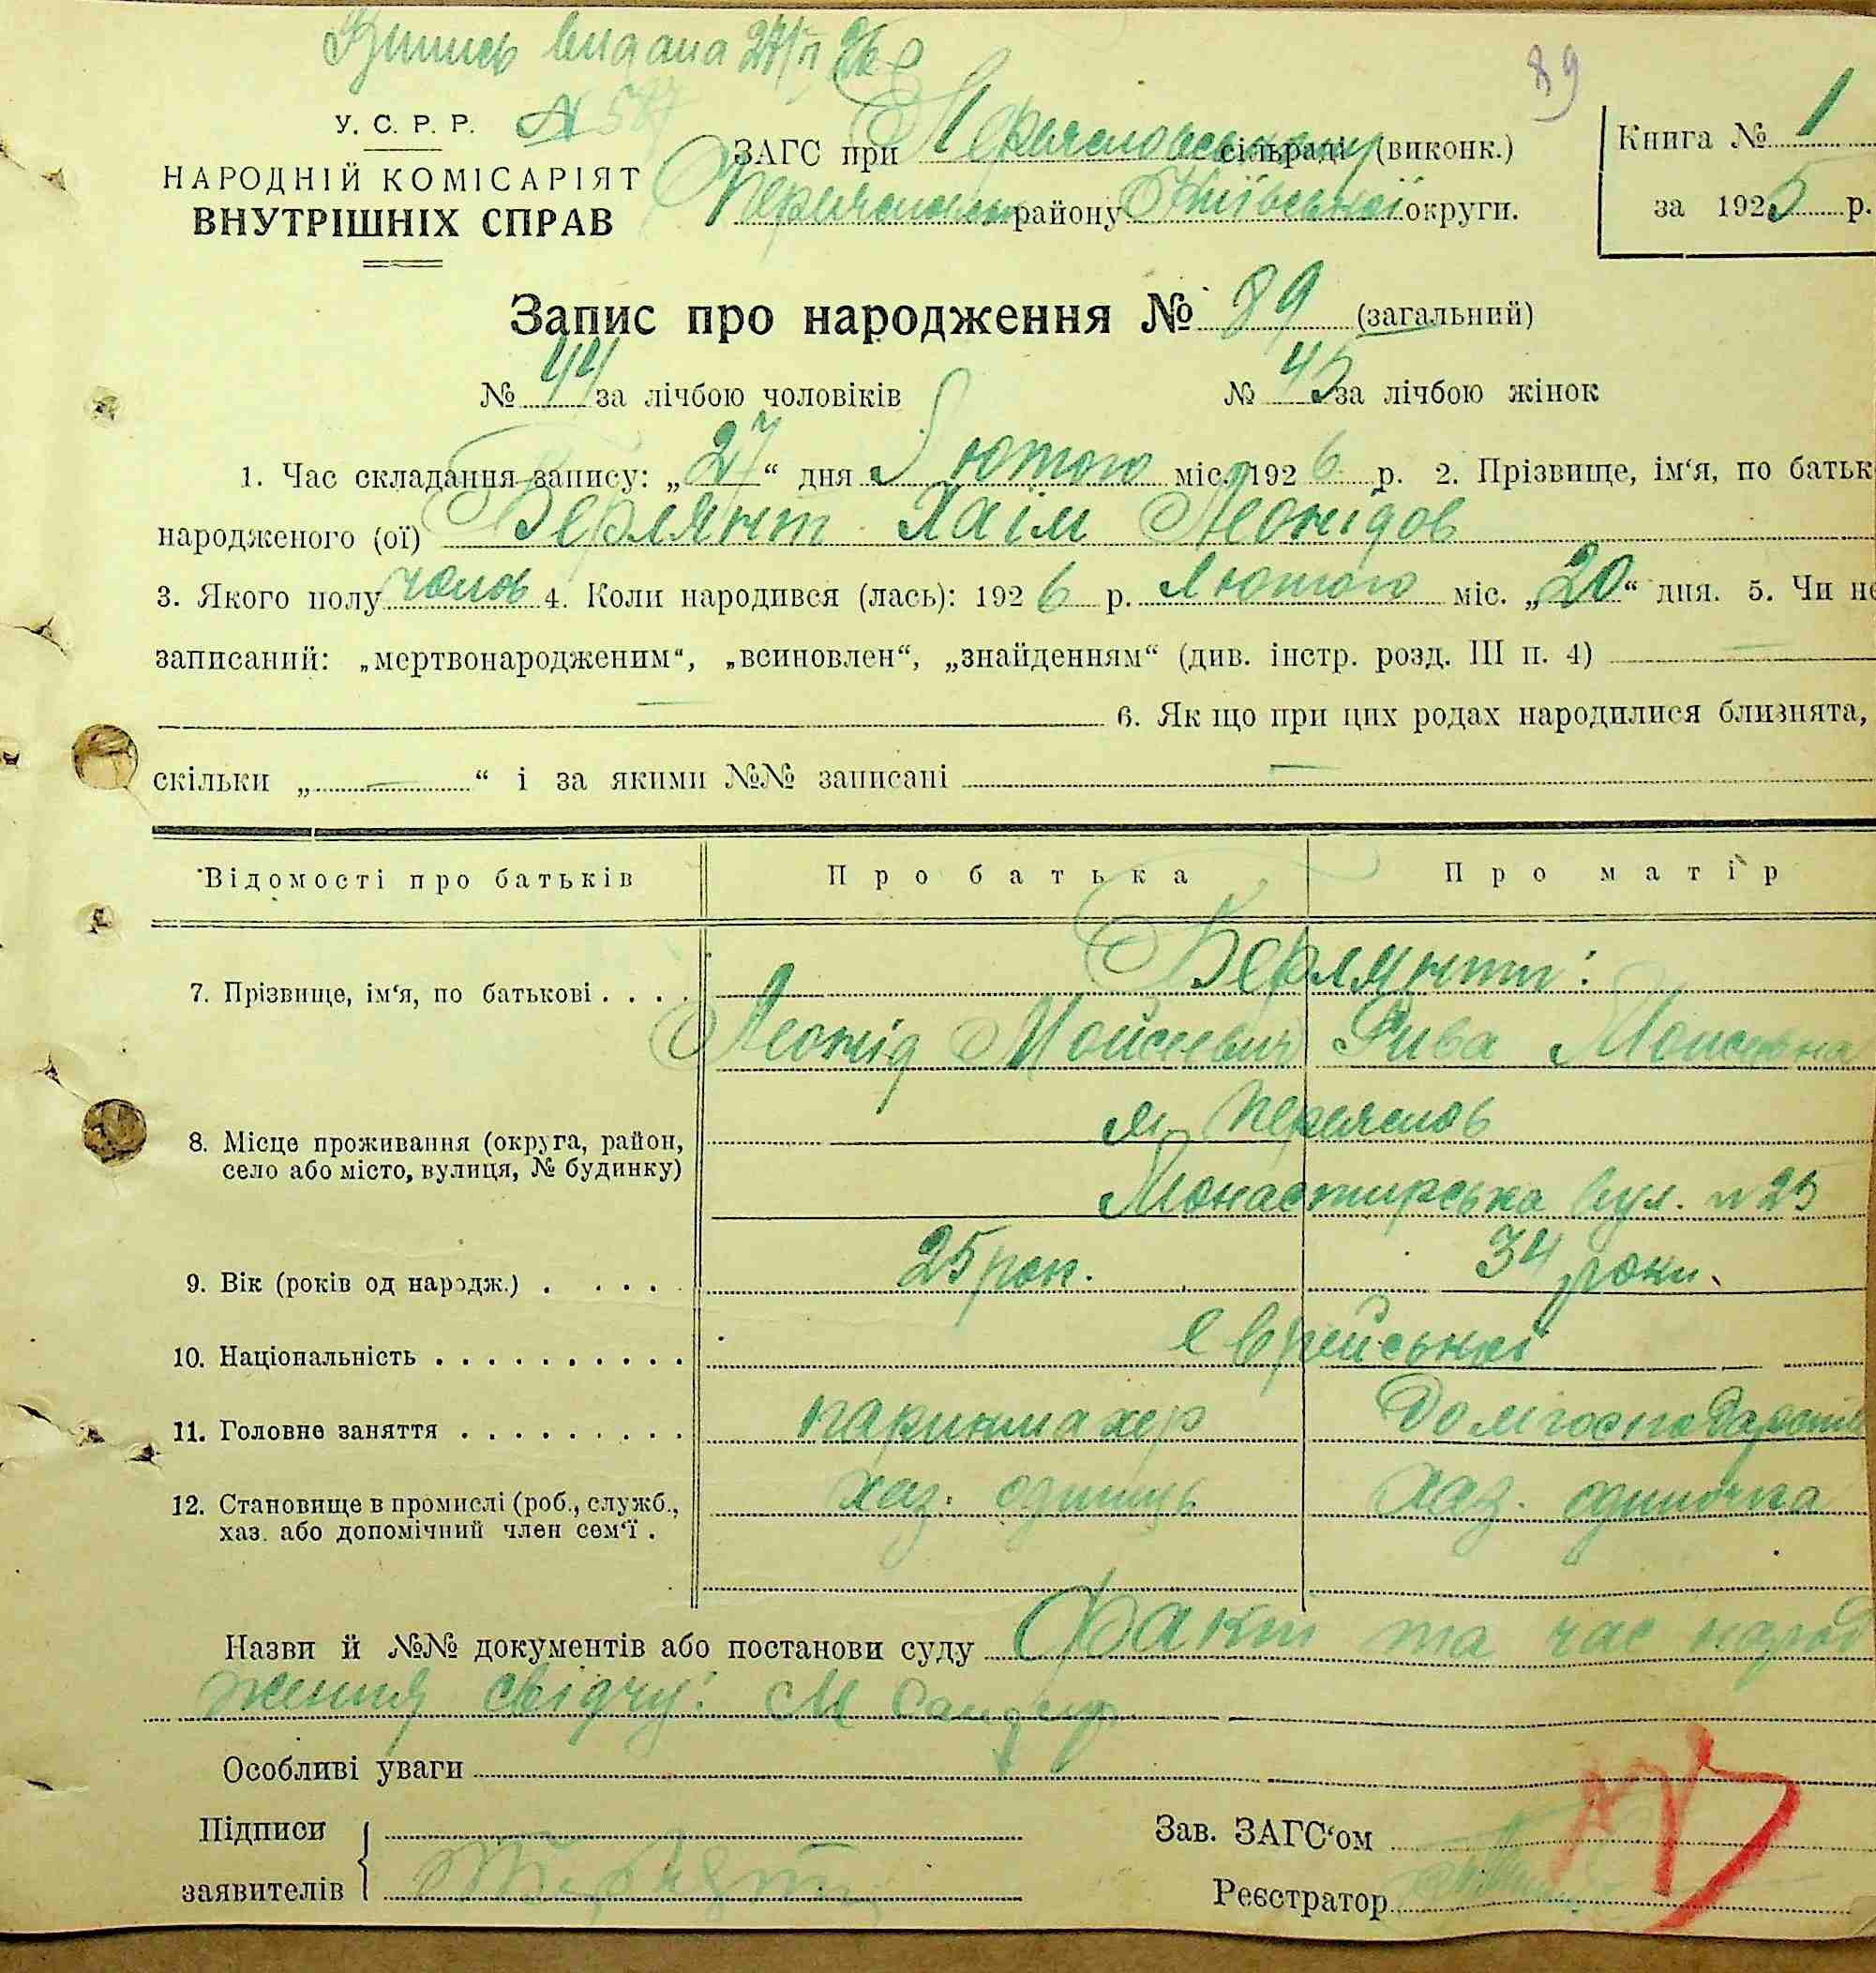 видана 27/II 26 р
89
У. С. Р. Р.
НАРОДНІЙ КОМІСАРІЯТ
ВНУТРІШНІХ СПРАВ
№ 587
ЗАГС при Переяславському сільраді (виконк.)
району Київської округи.
Книга № 1
за 1925 р.
Запис про народження № 89 (загальний)
№ 44 за лічбою чоловіків № 45 за лічбою жінок
1. Час складання запису: „27“ дня Лютого міс. 1926 р. 2. Прізвище, ім‘я, по батьк
народженого (ої) Берлянт Хаім Леонідов
3. Якого полу чолов 4. Коли народився (лась): 1926 р. Лютого міс. „20“ дня. 5. Чи не
записаний: „мертвонародженим“, „всиновлен“, „знайденням“ (див. інстр. розд. III п. 4) —
— 6. Як що при цих родах народилися близнята,
скільки „—“ і за якими №№ записані —
Відомості про батьків Про батька Про матір
7. Прізвище, ім‘я, по батькові . . . . Берлянт:
Леонід Мойсеевич Рива Моисеевна
8. Місце проживання (округа, район, м Переяслов
село або місто, вулиця, № будинку) Монастирська вул. № 25
9. Вік (років од народж.) . . . . . 25 рок. 34 роки.
10. Національність . . . . . . . . . . Єврейської
11. Головне заняття . . . . . . . . . парикмахер Домгосподарств
12. Становище в промислі (роб., служб., хаз. одинець хаз. одиночка
хаз. або допомічний член сем‘ї .
Назви й №№ документів або постанови суду Факт та час народ
ження свідчу: М
Особливі уваги
Підписи
заявителів
Зав. ЗАГС‘ом
Реєстратор